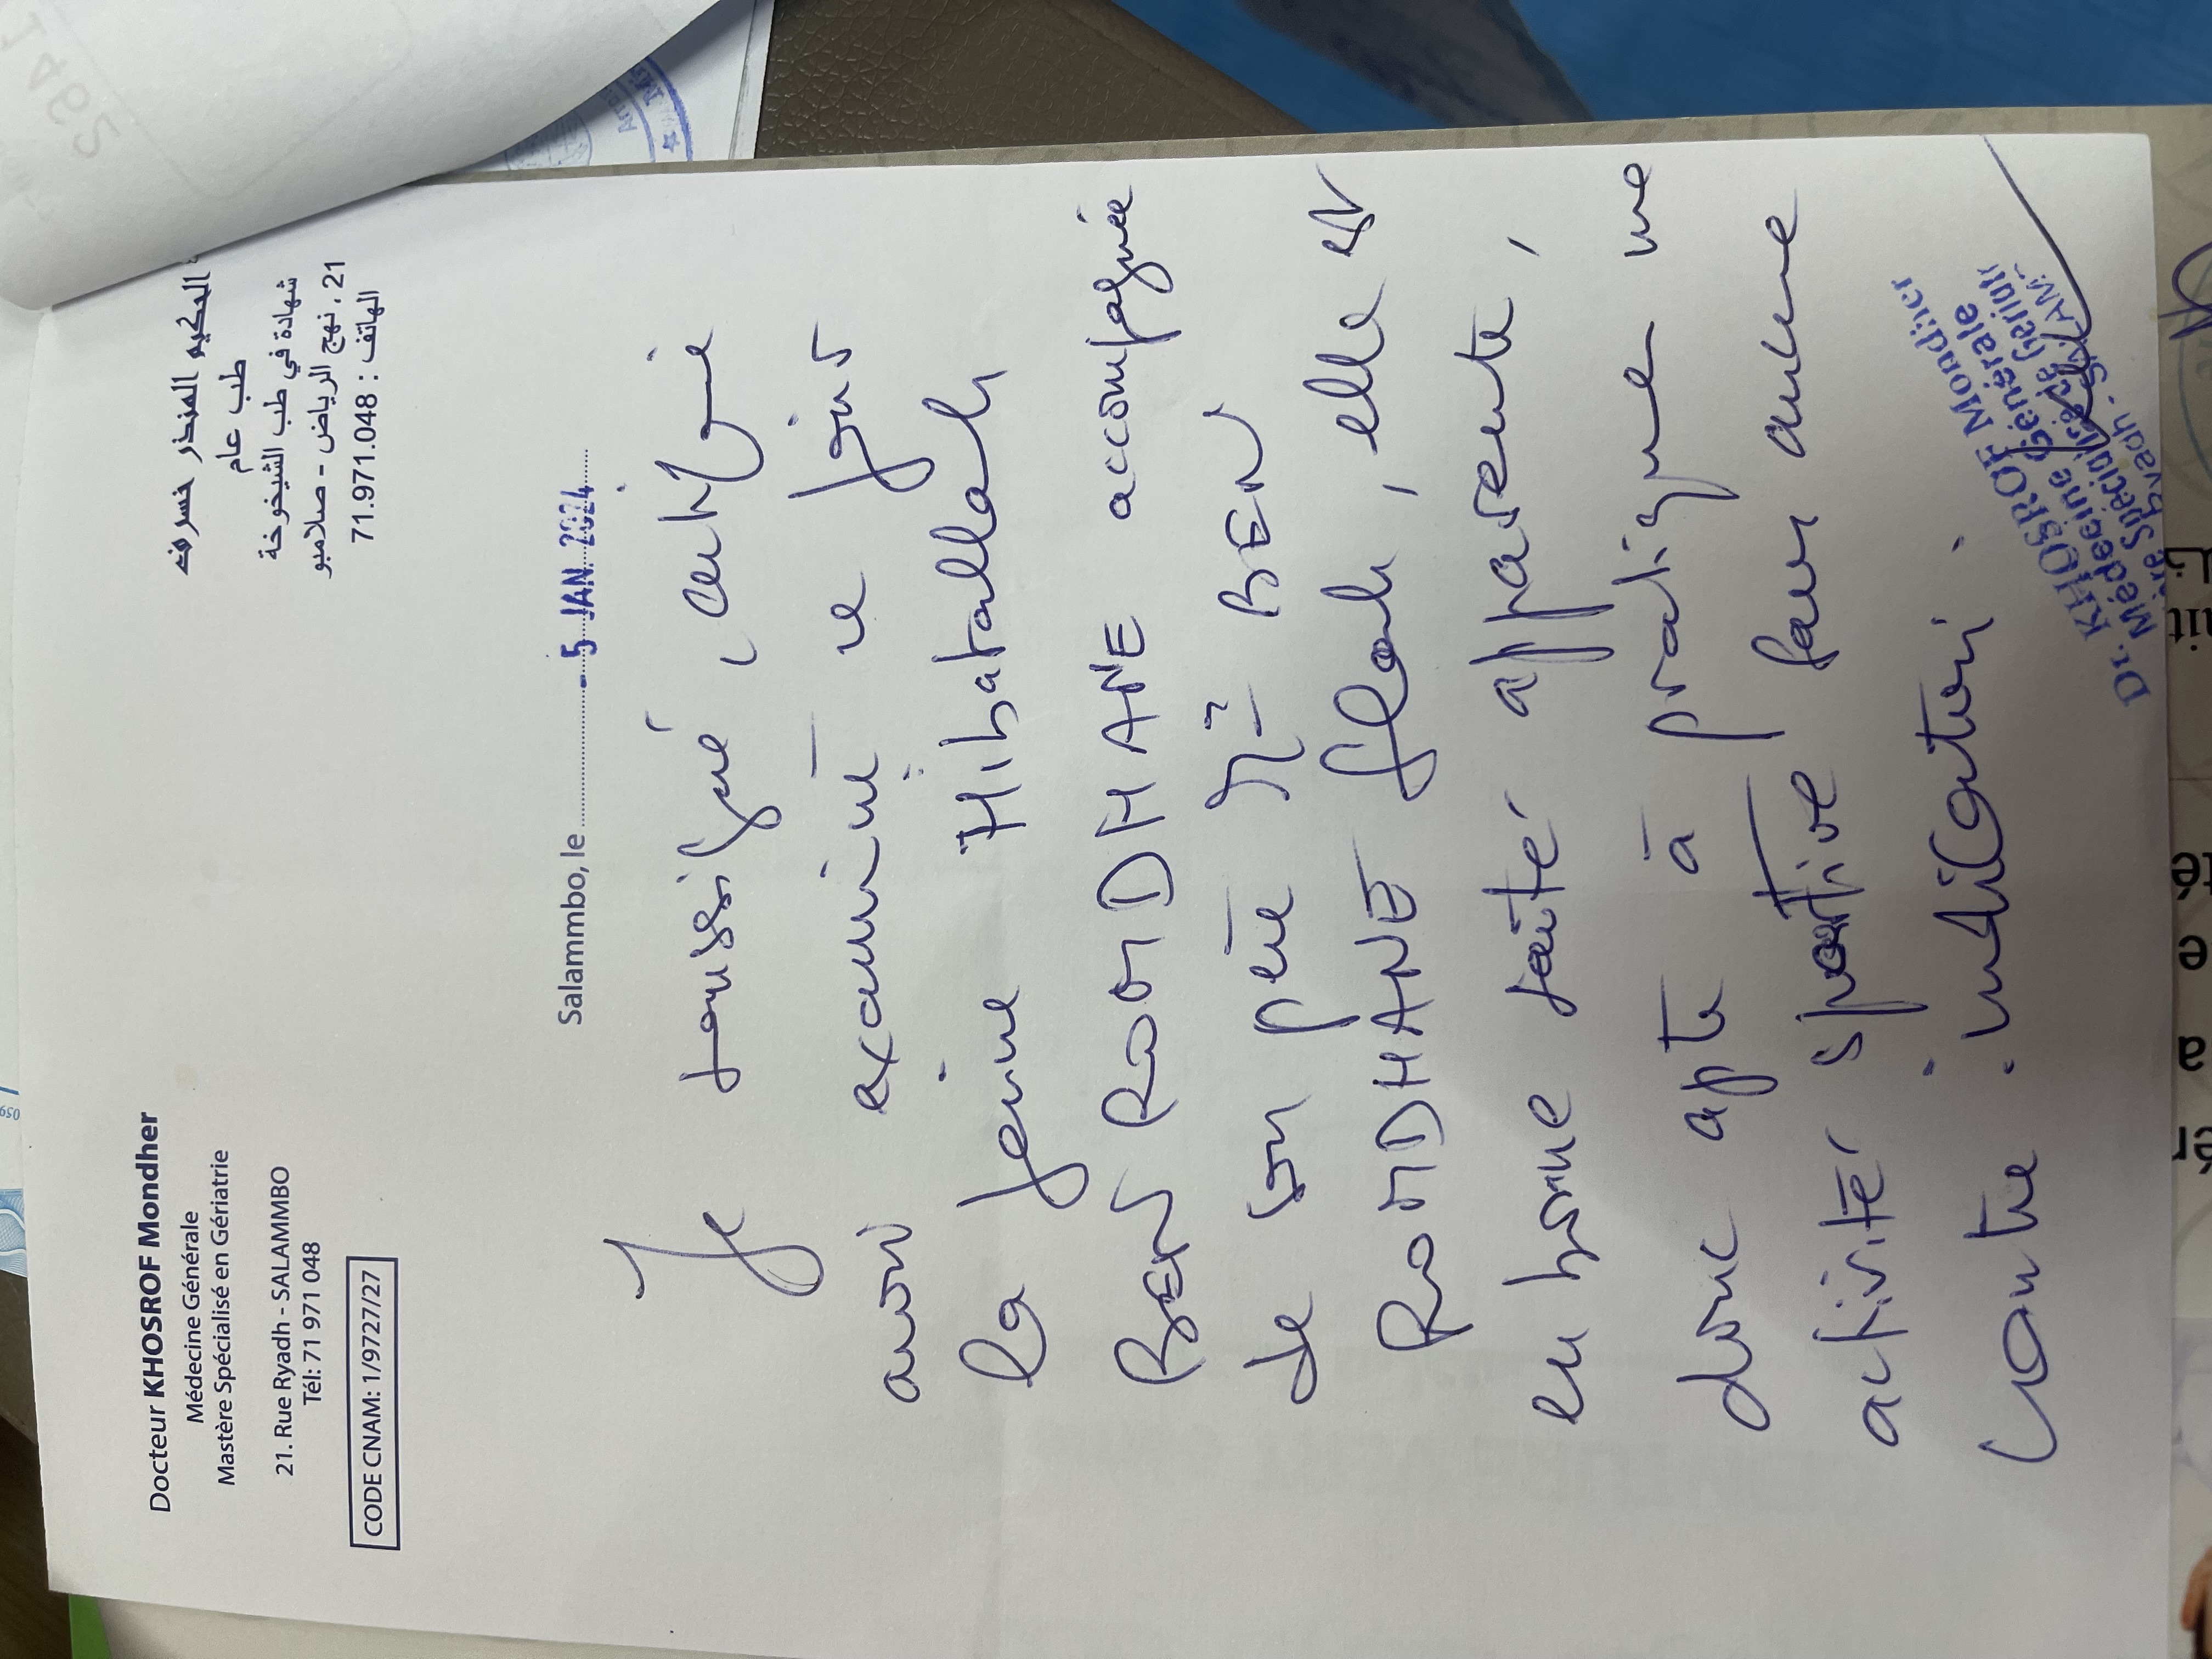 Docteur KHOSROF Mondher
Médecine Générale
Mastère Spécialisé en Gériatrie
21. Rue Ryadh - SALAMMBO
Tél: 71 971 048
CODE CNAM: 1/9727/27
الحكيم المنذر خسرف
طب عام
شهادة في طب الشيخوخة
21، نهج الرياض - صلامبو
الهاتف : 71.971.048
Salammbo, le - 5 JAN. 2024
Je soussigné, certifie
avoir examiné ce jour
la jeune Hibatallah
BEN ROMDHANE accompagnée
de son père Mr BEN
ROMDHANE, elle est
en bonne santé apparente,
donc apte à pratiquer une
activité sportive sans aucune
contre indication.
Dr. KHOSROF Mondher
Médecine Générale
Ryadh
059